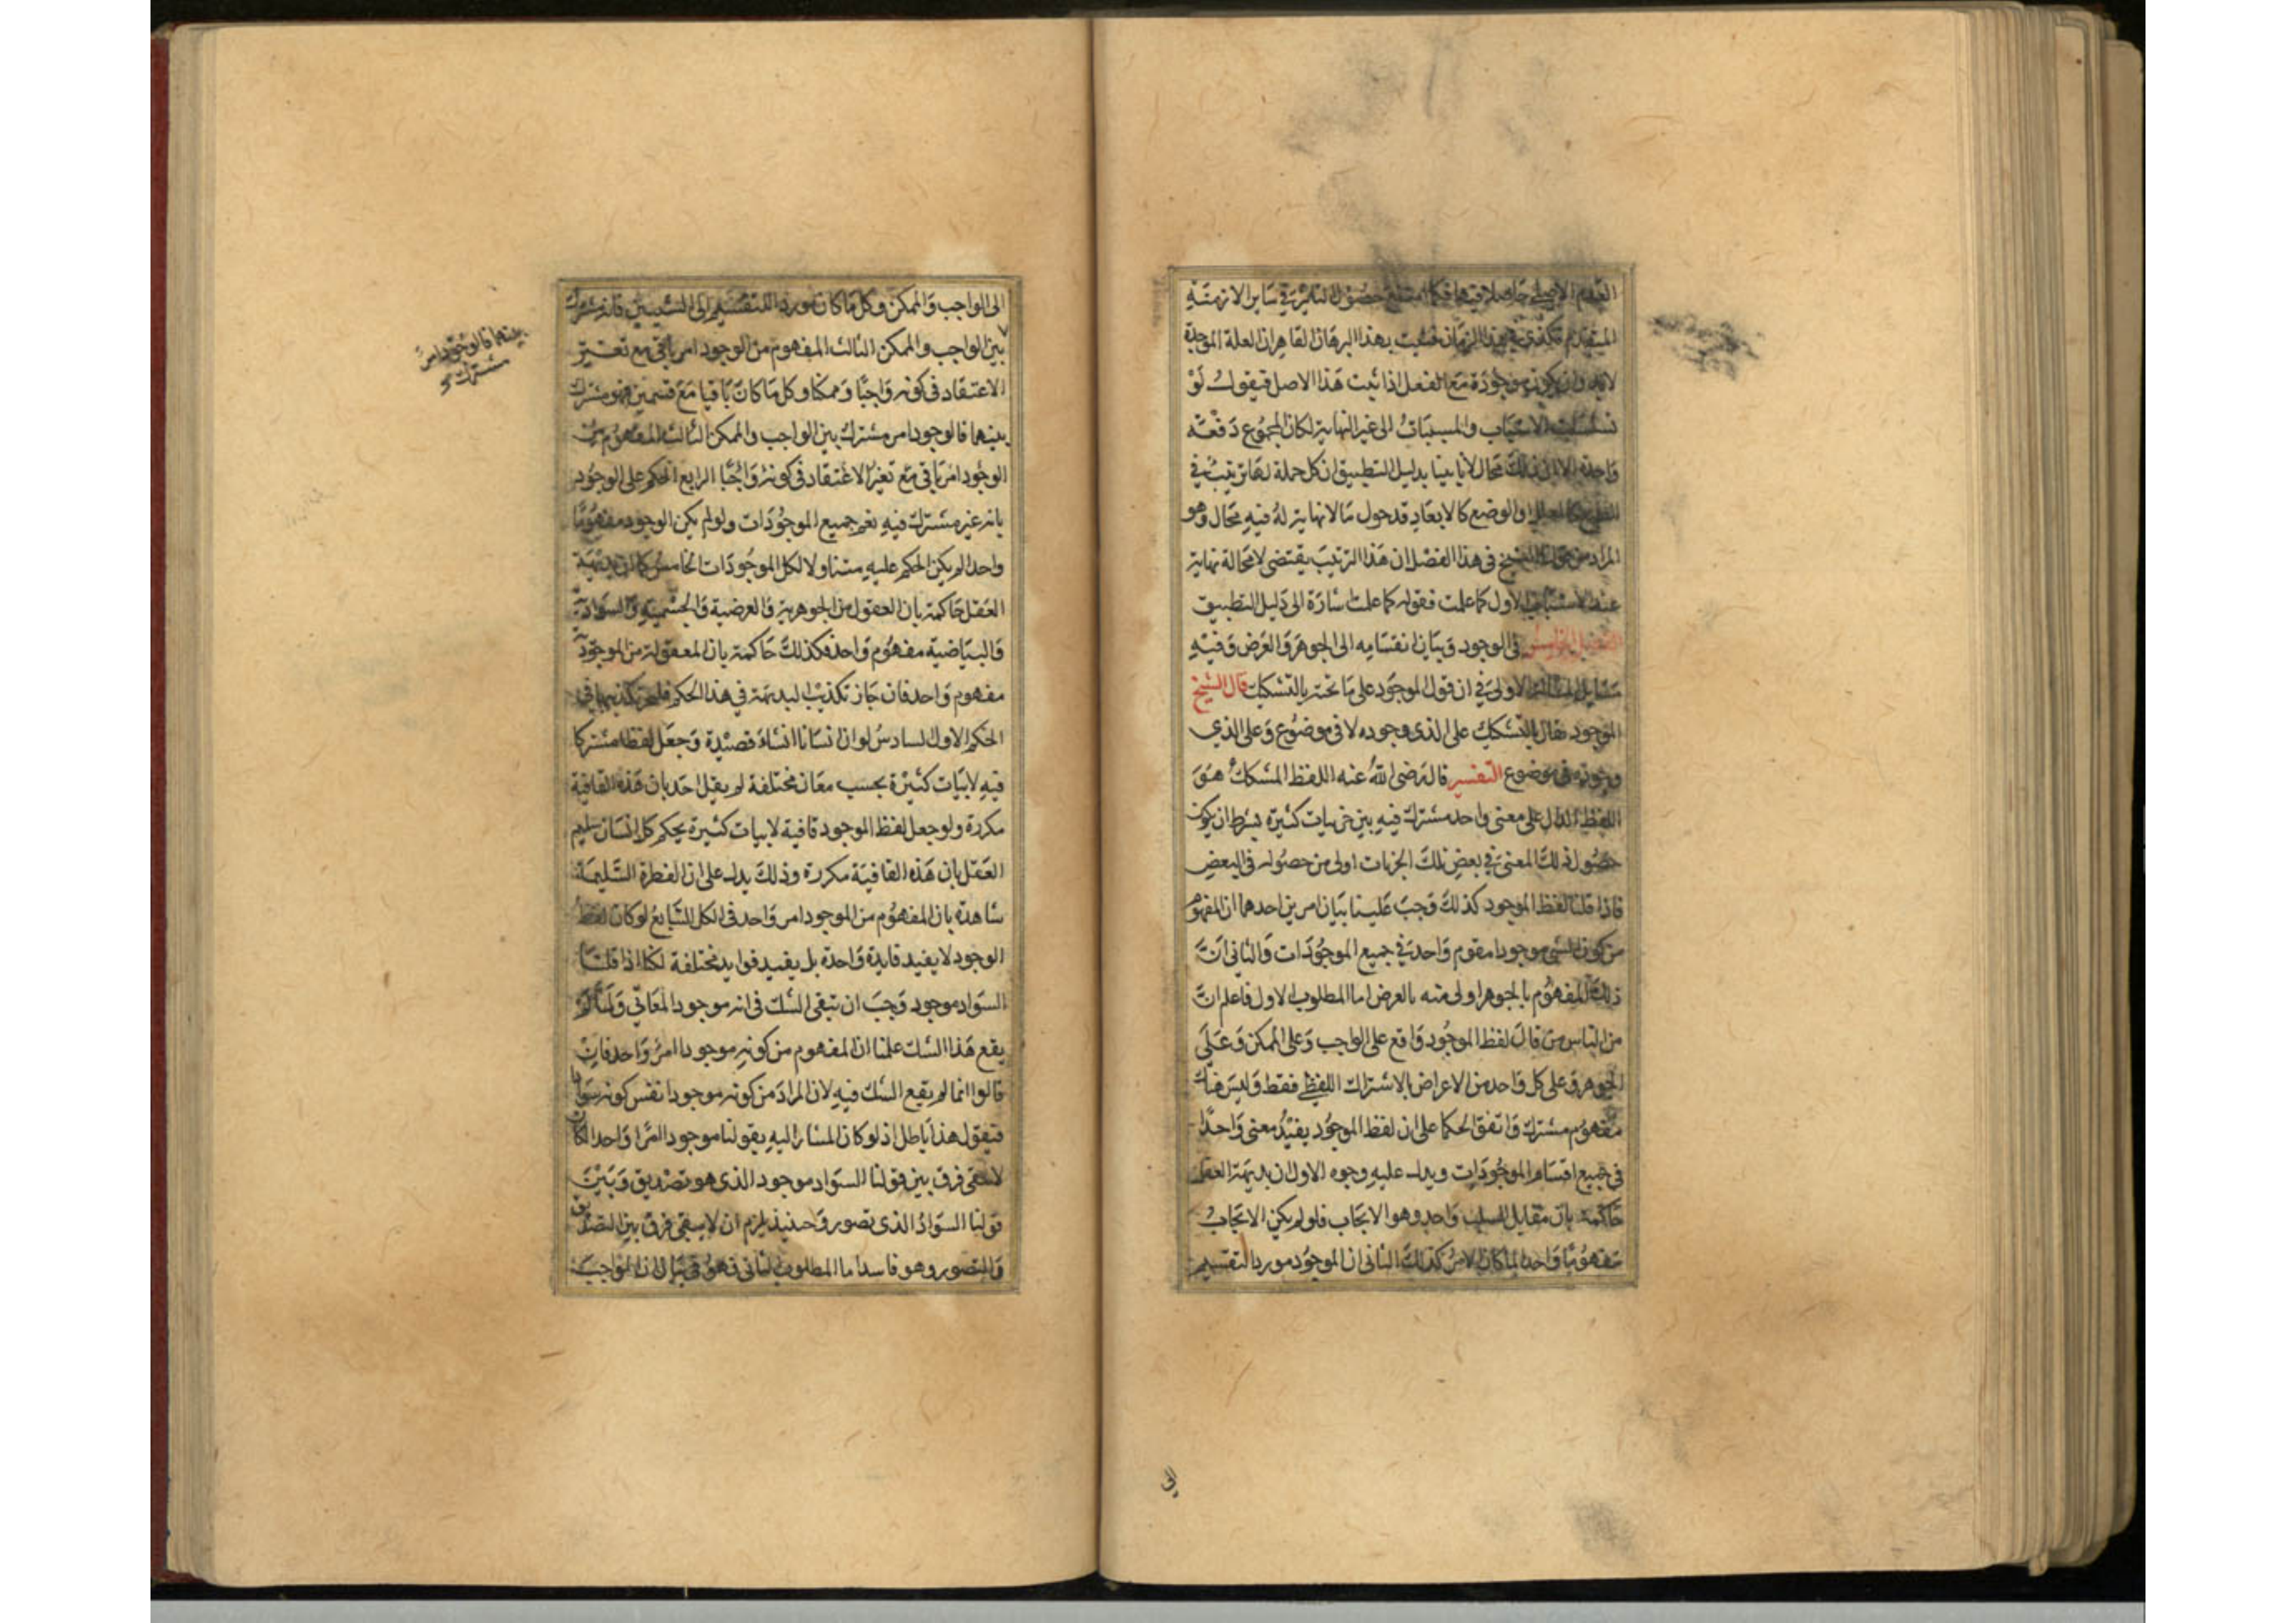 العدم الاصلي حاصلا فيها فكما امتنع حصول التاثير في ساير الازمنة
المتقدمة فكذى في هذا الزمان فثبت بهذا البرهان القاهر ان العلة الموجدة
لابد وان يكون موجودة مع الفعل اذا ثبت هذا الاصل فيقول لو
تسلسلت الاسباب والمسببات الى غير النهاية لكان المجموع دفعة
واحدة الا ان ذلك محال لانا بينا بدليل التطبيق ان كل جملة لها ترتيب في
الطبع كالعلل او الوضع كالابعاد فدخول ما لا نهاية له فيه محال وهو
المراد من قول الشيخ في هذا الفصل ان هذا الترتيب يقتضى لا محالة نهاية
عند الاسباب الاول كما علمت فقوله كما علمت اشارة الى دليل التطبيق
الفصل في الوجود وبيان انقسامه الى الجوهر والعرض وفيه
مسايل المسئلة الاولى في ان قول الموجود على ما تحته بالتشكيك قال الشيخ
الموجود يقال بالتشكيك على الذى وجوده لا في موضوع وعلى الذي
وجوده في موضوع التفسير قال رضى الله عنه اللفظ المشكك هو
اللفظ الدال على معنى واحد مشترك فيه بين جزييات كثيرة بشرط ان يكون
حصول ذلك المعنى في بعض تلك الجزيات اولى من حصوله في البعض
فاذا قلنا لفظ الموجود كذلك وجب علينا بيان امرين احدهما ان المفهوم
من كون الشي موجودا مفهوم واحد في جميع الموجودات والثاني ان
ذلك المفهوم بالجوهر اولى منه بالعرض اما المطلوب الاول فاعلم ان
من الناس من قال لفظ الموجود واقع على الواجب وعلى الممكن وعلى
الجوهر وعلى كل واحد من الاعراض بالاشتراك اللفظي فقط وليس هناك
مفهوم مشترك واتفق الحكما على ان لفظ الموجود يفيد معنى واحدا
في جميع اقسام الموجودات ويدل عليه وجوه الاول ان بديهة العقل
حاكمة بان مقابل السلب واحد وهو الايجاب فلو لم يكن الايجاب
مفهوما واحدا لما كان الامر كذلك الثاني ان الموجود مورد التقسيم
الى
الى الواجب والممكن وكل ما كان مورد اللتقسيم الى الشيين فانه مشترك
بين الواجب والممكن الثالث المفهوم من الوجود امر باقي مع تغير
الاعتقاد في كونه واجبا وممكنا وكل ما كان باقيا مع قسمين فهو مشترك
بينهما فالوجود امر مشترك بين الواجب والممكن الثالث المفهوم من
الوجود امر باقي مع تغير الاعتقاد في كونه واجبا الرابع الحكم على الوجود
بانه غير مشترك فيه نعم جميع الموجودات ولو لم يكن الوجود مفهوما
واحدا لم يكن الحكم عليه متناولا لكل الموجودات الخامس كما ان بديهة
العقل حاكمة بان العقول من الجوهرية والعرضية والجسمية والسوادية
والبياضية مفهوم واحد فكذلك حاكمة بان المعقولة من الموجود
مفهوم واحد فان جاز تكذيب البديهة في هذا الحكم فليجز تكذيبها في
الحكم الاول السادس لو ان انسانا انشاء قصيدة وجعل لفظا مشتركا
فيه لابيات كثيرة بحسب معان مختلفة لم يقل احد بان هذه القافية
مكررة ولو جعل لفظ الموجود قافية لابيات كثيرة يحكم كل انسان سليم
العقل بان هذه القافية مكررة وذلك يدل على ان الفطرة السليمة
شاهدة بان المفهوم من الموجود امر واحد في الكل السابع لو كان لفظ
الوجود لا يفيد فايدة واحدة بل يفيد فوايد مختلفة لكنا اذا قلنا
السواد موجود وجب ان تبقى الشك في انه موجود المعانى ولما لم
يقع هذا الشك علمنا ان المفهوم من كونه موجودا امر واحد فان
قالوا انما لم يقع الشك فيه لان المراد من كونه موجودا نفس كونه سوادا
فيقول هذا باطل اذ لو كان المشار اليه بقولنا موجود امرا واحدا لكان
لا يبقى فرق بين قولنا السواد موجود الذى هو تصديق وبين
قولنا السواد الذى تصور وحينئذ يلزم ان لا يبقى فرق بين التصديق
والتصور وهو فاسد اما المطلوب الثاني فهو في بيان ان الواجب
بينهما فالوجود امر
مشترك